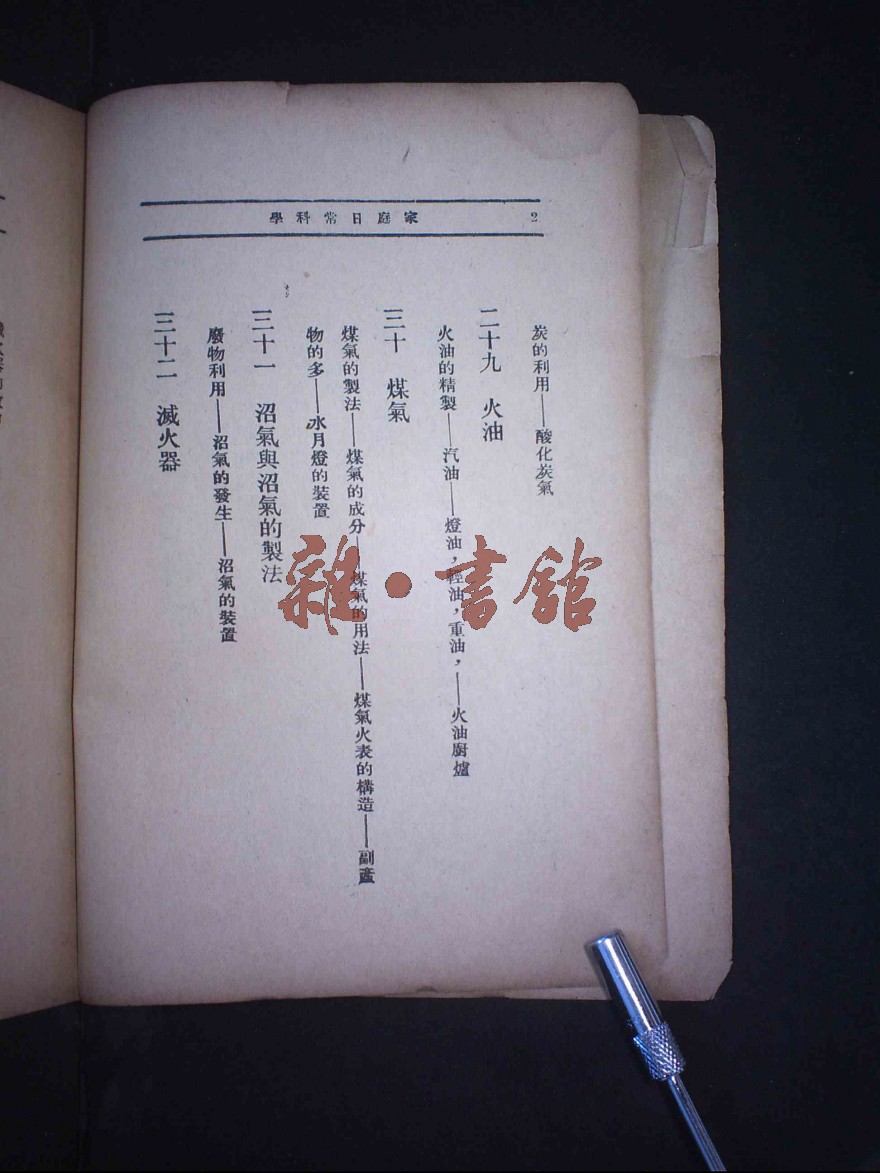 家庭日常科學 2
炭的利用——酸化炭氣
二十九 火油
火油的精製——汽油——燈油，輕油，重油，——火油廚爐
三十 煤氣
煤氣的製法——煤氣的成分——煤氣的用法——煤氣火表的構造——副產
物的多——水月燈的裝置
三十一 沼氣與沼氣的製法
廢物利用——沼氣的發生——沼氣的裝置
三十二 滅火器
雜·書館